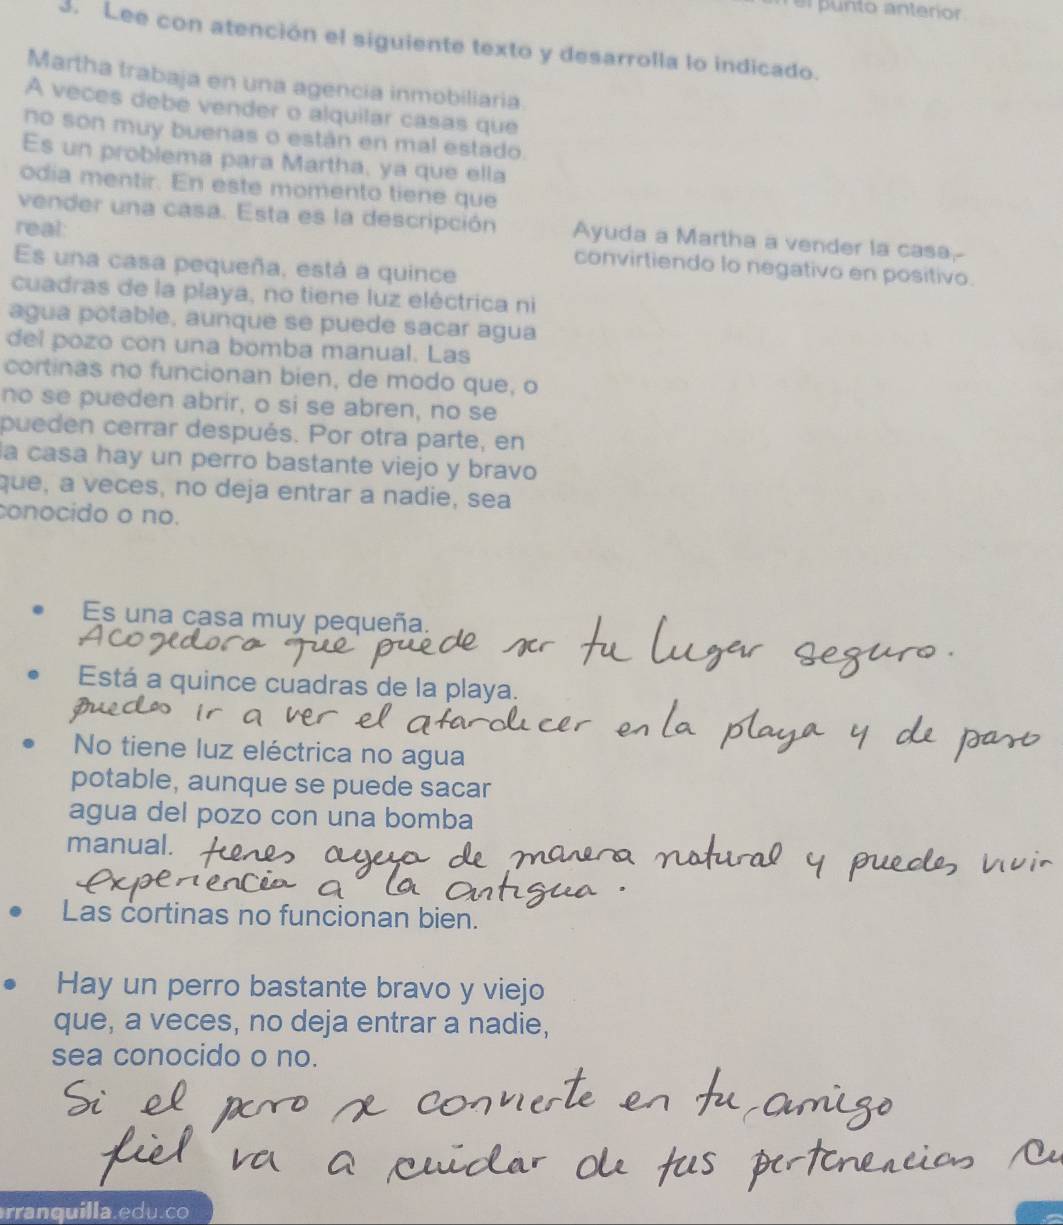 punto anterior
3. Lee con atención el siguiente texto y desarrolla lo indicado.
Martha trabaja en una agencia inmobiliaria.
A veces debe vender o alquilar casas que
no son muy buenas o están en mal estado.
Es un problema para Martha, ya que ella
odia mentir. En este momento tiene que
vender una casa. Esta es la descripción
real:
Es una casa pequeña, está a quince
cuadras de la playa, no tiene luz eléctrica ni
agua potable, aunque se puede sacar agua
del pozo con una bomba manual. Las
cortinas no funcionan bien, de modo que, o
no se pueden abrir, o si se abren, no se
pueden cerrar después. Por otra parte, en
la casa hay un perro bastante viejo y bravo
que, a veces, no deja entrar a nadie, sea
conocido o no.
Ayuda a Martha a vender la casa,
convirtiendo lo negativo en positivo.
• Es una casa muy pequeña.
Acogedora que puede ser tu lugar seguro.
• Está a quince cuadras de la playa.
puedes ir a ver el atardecer en la playa y de paso
• No tiene luz eléctrica no agua
potable, aunque se puede sacar
agua del pozo con una bomba
manual. tienes agua de manera natural y puedes vivir
experiencia a la antigua.
• Las cortinas no funcionan bien.
• Hay un perro bastante bravo y viejo
que, a veces, no deja entrar a nadie,
sea conocido o no.
Si el perro se convierte en tu amigo
fiel va a cuidar de tus pertenencias
rranquilla.edu.co